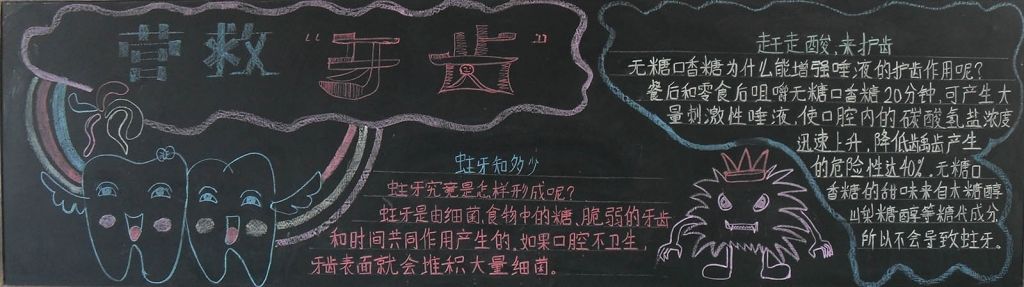 营救“牙齿”
蛀牙知多少
蛀牙究竟是怎样形成呢?
蛀牙是由细菌.食物中的糖、脆弱的牙齿
和时间共同作用产生的.如果口腔不卫生,
牙齿表面就会堆积大量细菌。
赶走酸,来护齿
无糖口香糖为什么能增强唾液的护齿作用呢?
餐后和零食后咀嚼无糖口香糖20分钟,可产生大
量刺激性唾液,使口腔内的碳酸氢盐浓度
迅速上升,降低龋齿产生
的危险性达40%.无糖口
香糖的甜味来自木糖醇
山梨糖醇等糖代成分
所以不会导致蛀牙.